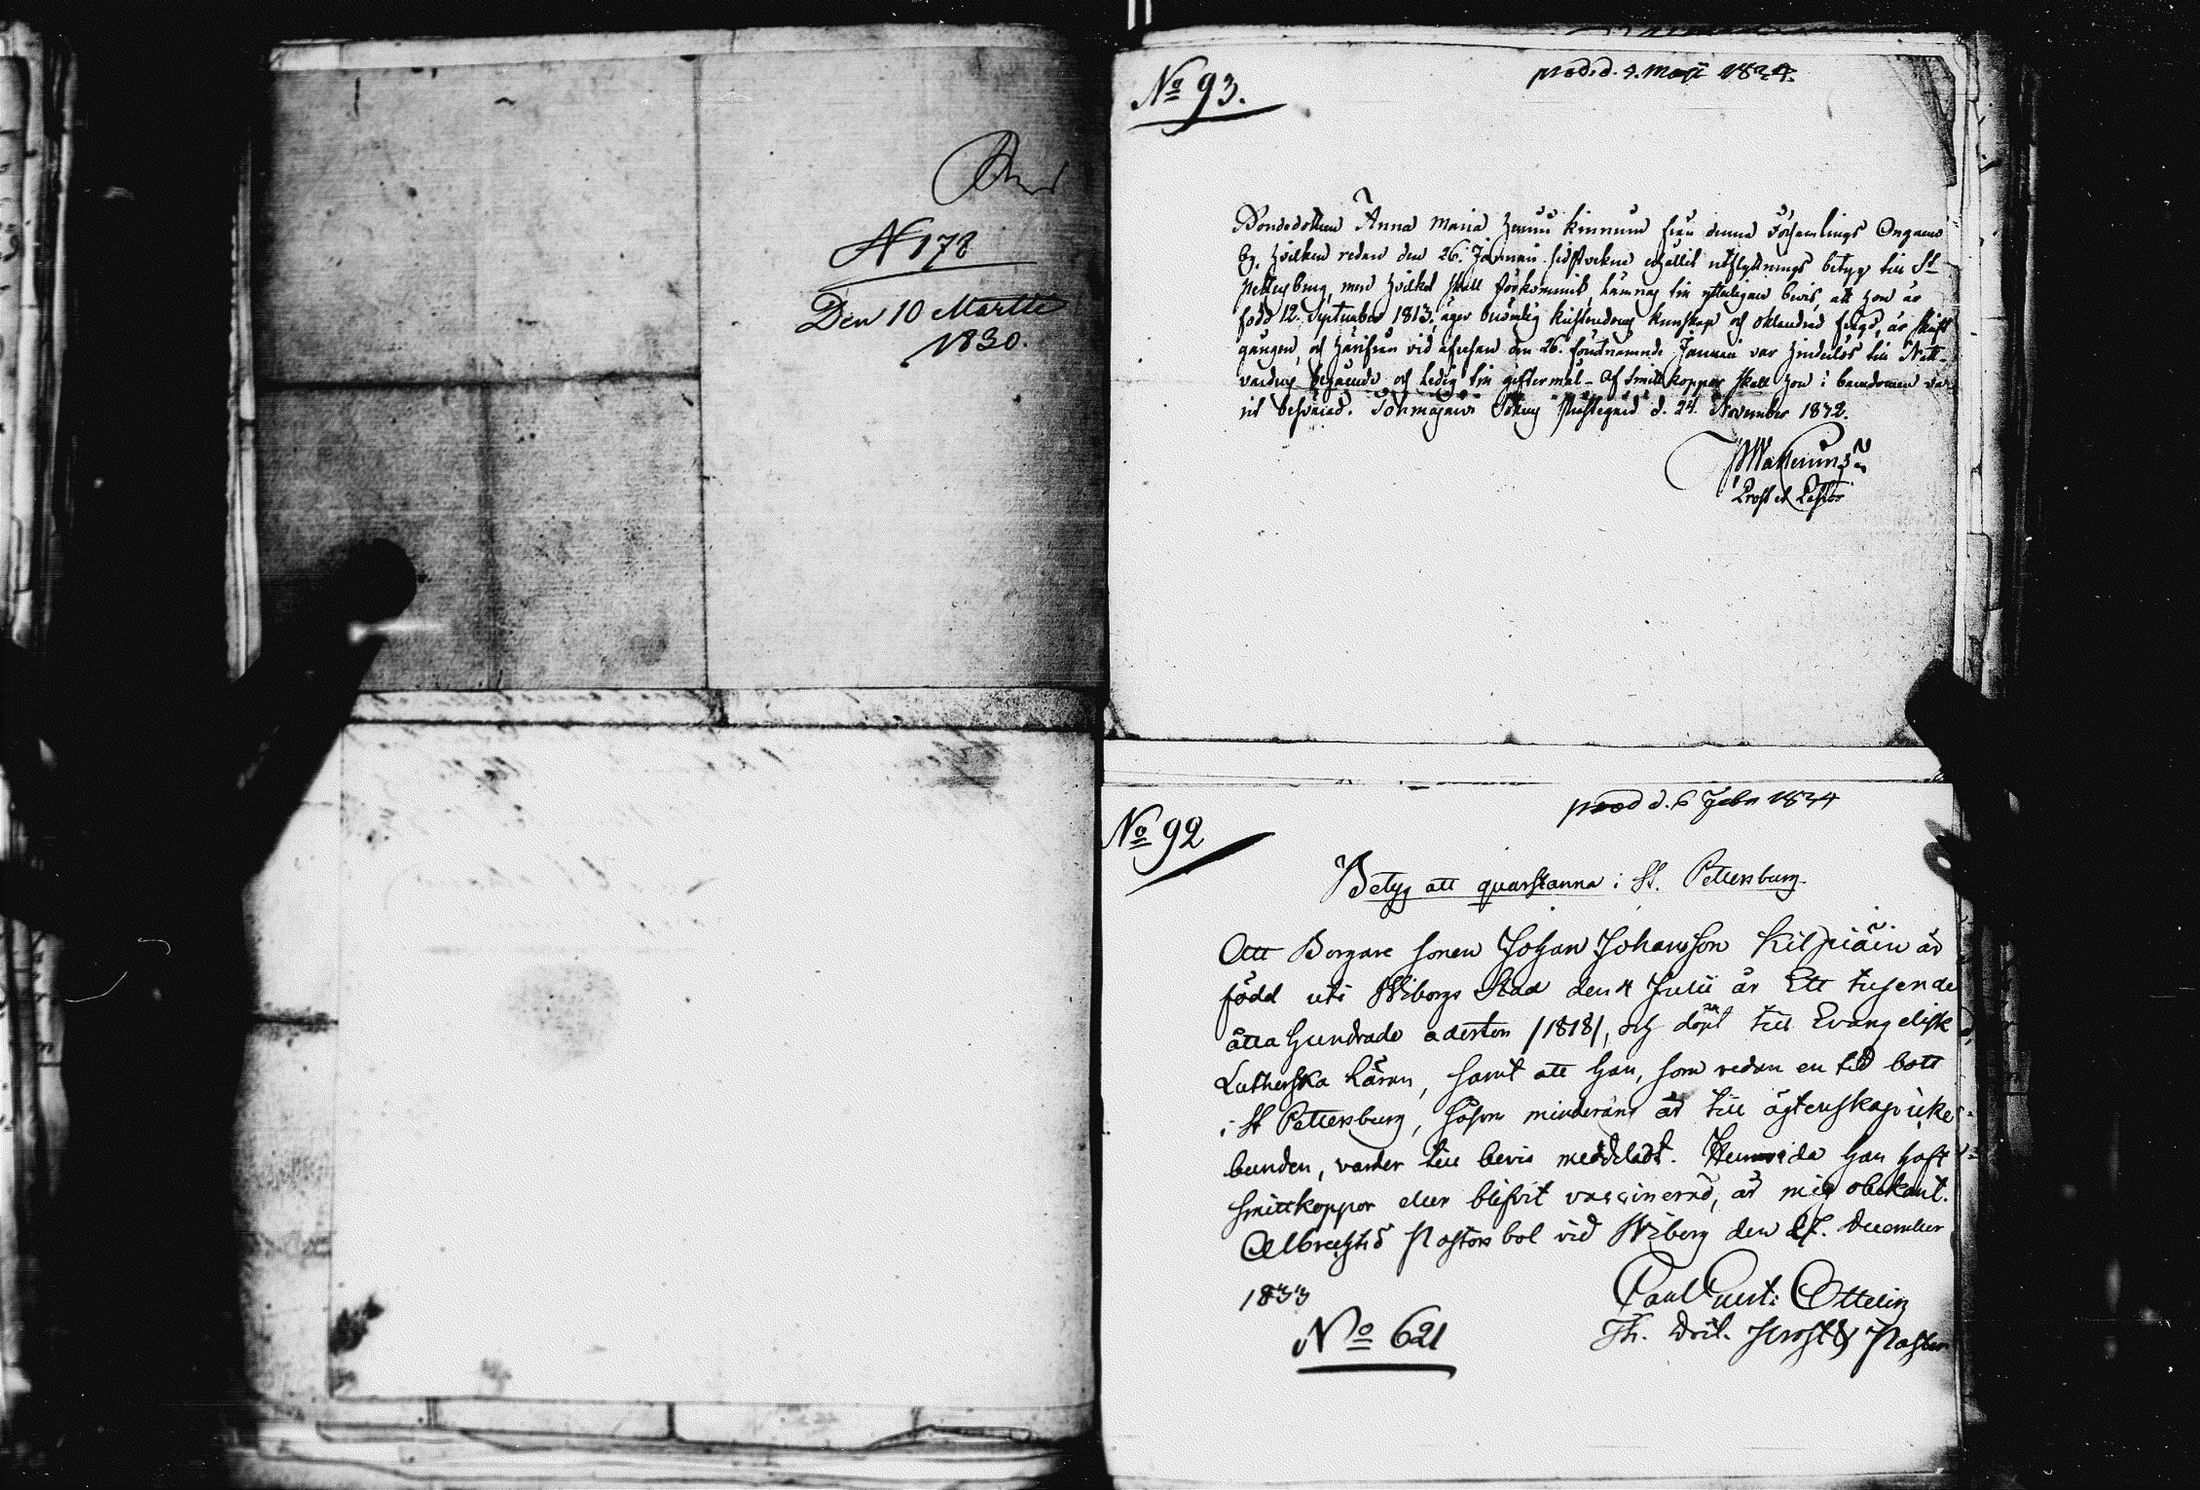 N 178
Den 10 Martii
1830.
No 93.
prod. d. 4. Maji 1834.
Bondedottren Anna Maria Kinnunen från denna Församlings Onkamo
By, hvilken redan den 26. Januari sidstvekne erhållit utflyttnings betyg till St
Pettersburg, men hvilket skall förkommit, lämnas till ytterligare bevis, att hon är
född 12. September 1813, äger christendoms kunskap och oklandrad frägd, är skrift
gången, och härifrån vid afresan den 26. förutnämnde Januari var hinderlös till Natt-
vardens begående och ledig till giftermål - Af Smittkoppor skall hon i barndomen va-
rit besvärad. Tohmajärvi Sokns Prästegård d. 24. November 1832.
Prost et Pastor
No 92
prod d. 6 Febr 1834
Betyg att quarstanna i St. Pettersburg.
Att Borgare sonen Johan Johansson Kilpiäin är
född uti Wiborgs Stad den 4 Julii år Ett tusende
åtta hundrade aderton /1818/, och döpt till Evangelisk
Lutherska Läran, samt att han, som redan en tid bott
i St Pettersburg, såsom minderårig är till ägtenskap icke
bunden, varder till bevis meddeladt. Huruvida han haft
smittkoppor eller blifvit vaccinerad, är mig obekant.
Albrechts Pastors bol vid Wiborg den 27. December
1833
Paul Ottelin
Th. Doct. Prost & Pastor
No 621